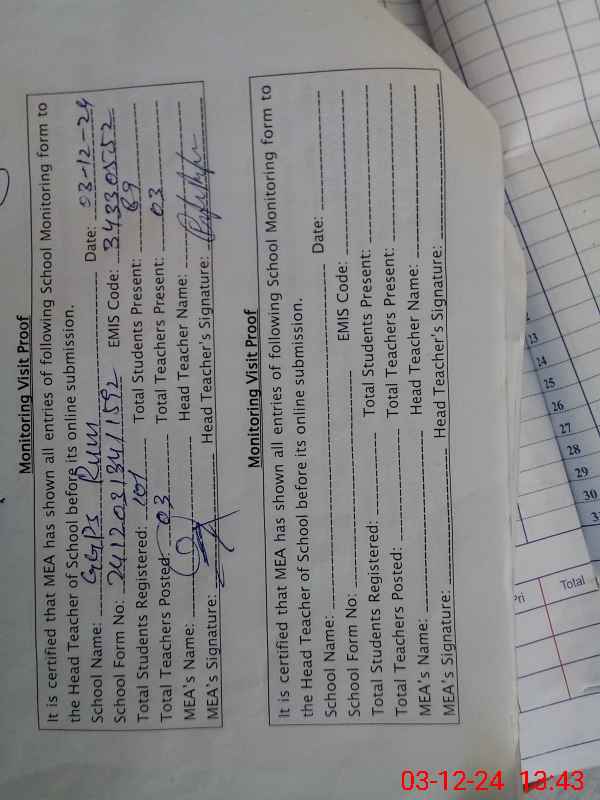 Monitoring Visit Proof
It is certified that MEA has shown all entries of following School Monitoring form to
the Head Teacher of School before its online submission.
School Name: GGPS Rum Date: 03-12-24
School Form No: 2412031341592 EMIS Code: 34330552
Total Students Registered: 101 Total Students Present: 89
Total Teachers Posted: 03 Total Teachers Present: 03
MEA's Name: Head Teacher Name:
MEA's Signature: Head Teacher's Signature:
Monitoring Visit Proof
It is certified that MEA has shown all entries of following School Monitoring form to
the Head Teacher of School before its online submission.
School Name: Date:
School Form No: EMIS Code:
Total Students Registered: Total Students Present:
Total Teachers Posted: Total Teachers Present:
MEA's Name: Head Teacher Name:
MEA's Signature: Head Teacher's Signature:
23
24
25
26
27
28
29
30
Pri Total
03-12-24 13:43